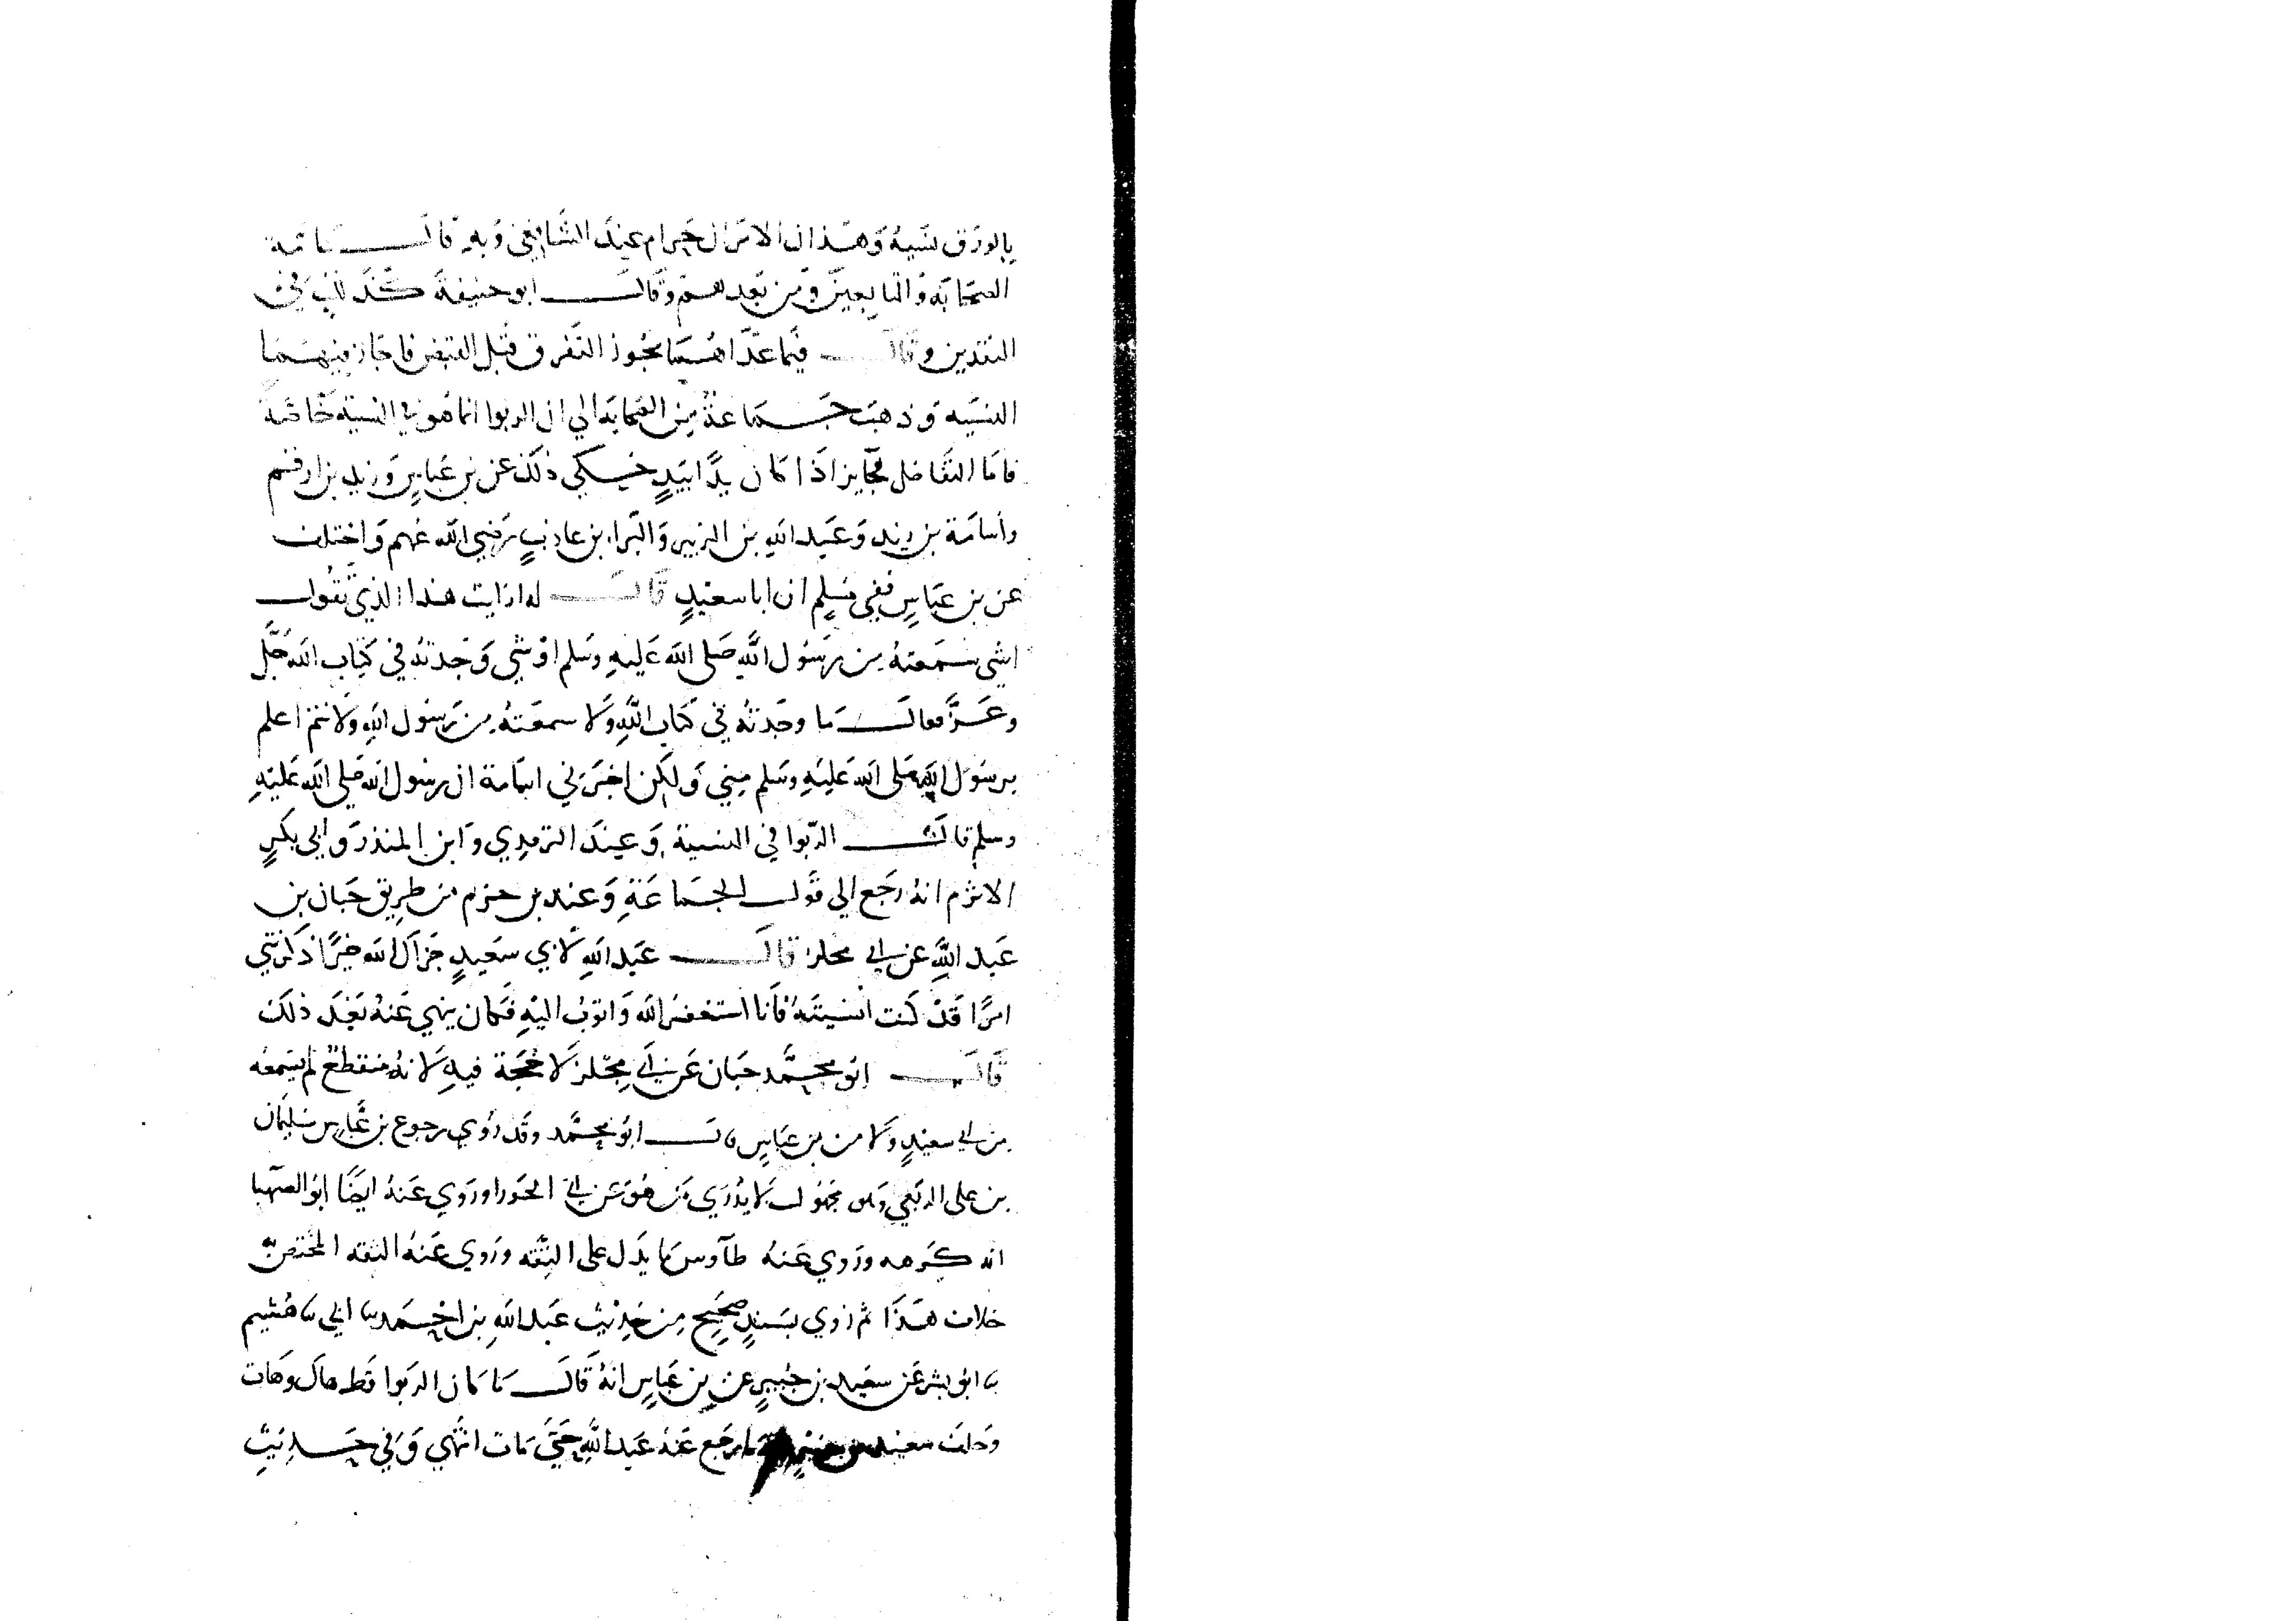 بالورق نسيه وهذان الامران حرام عند الشافعي وبه قال عامة
الصحابه والتابعين ومن بعدهم وقال ابو حنيفة كذلك في
النقدين وقال فيما عداهما يجوز التفرق قبل القبض فاجاز فيهما
النسيه وذهب جماعة من الصحابه الي ان الربوا انما هو في النسيه خاصة
فاما التفاضل فجايز اذا كان يدًا بيدٍ حكي ذلك عن بن عباسٍ وزيد بن ارقم
وأسامة بن زيد وعبد الله بن الزبير والبرا بن عازبٍ رضي الله عنهم واختلف
عن بن عباسٍ ففي مسلمٍ ان ابا سعيدٍ قال له ارايت هذا الذي تقول
اشي سمعته من رسول الله صلى الله عليه وسلم او شي وجدته في كتاب الله جل
وعز فقال ما وجدته في كتاب الله ولا سمعته من رسول الله ولانتم اعلم
برسول الله صلى الله عليه وسلم مني ولكن اخبرني اسامة ان رسول الله صلى الله عليه
وسلم قال الربوا في النسية وعند الترمدي وابن المنذر وابي بكرٍ
الاثرم انه رجع الي قول الجماعة وعند بن حزم من طريق حبان بن
عبد الله عن ابي مجلز قال عبد الله لابي سعيدٍ جزاك الله خيرًا ذكرتني
امرًا قد كنت انسيته فانا استغفر الله واتوب اليه فكان ينهي عنه بعد ذلك
قال ابو محمد حبان عن ابي مجلز لا حجة فيه لانه منقطع لم يسمعه
من ابي سعيدٍ ولا من بن عباسٍ قال ابو محمد وقد روي رجوع بن عباس سليمان
بن على الربعي وهو مجهول لا يدري من هو عن ابي الجوزا وروي عنه ايضًا ابو الصهبا
انه كرهه وروي عنه طاوس ما يدل على التقه وروي عنه الثقه المختص به
خلاف هذا ثم روي بسندٍ صحيح من حديث عبد الله بن احمد ثنا ابي ثنا هشيم
ثنا ابو بشر عن سعيد بن جبيرٍ عن بن عباسٍ انه قال ما كان الربوا قط هاك وهات
وحلف سعيد بن جبيرٍ ما رجع عنه عبد الله حتى مات انتهي وفي حديث